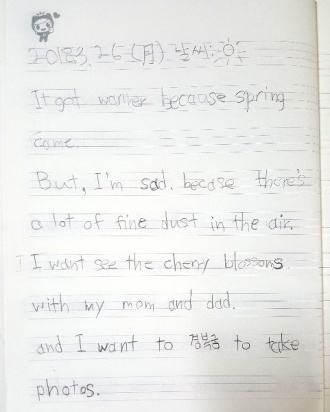 2018.3.26 (月) 날씨:
It got warmer because spring
come.
But, I'm sad. becase there's
a lot of fine dust in the air.
I want see the cherry blossons
with my mom and dad.
and I want to 경복궁 to take
photos.